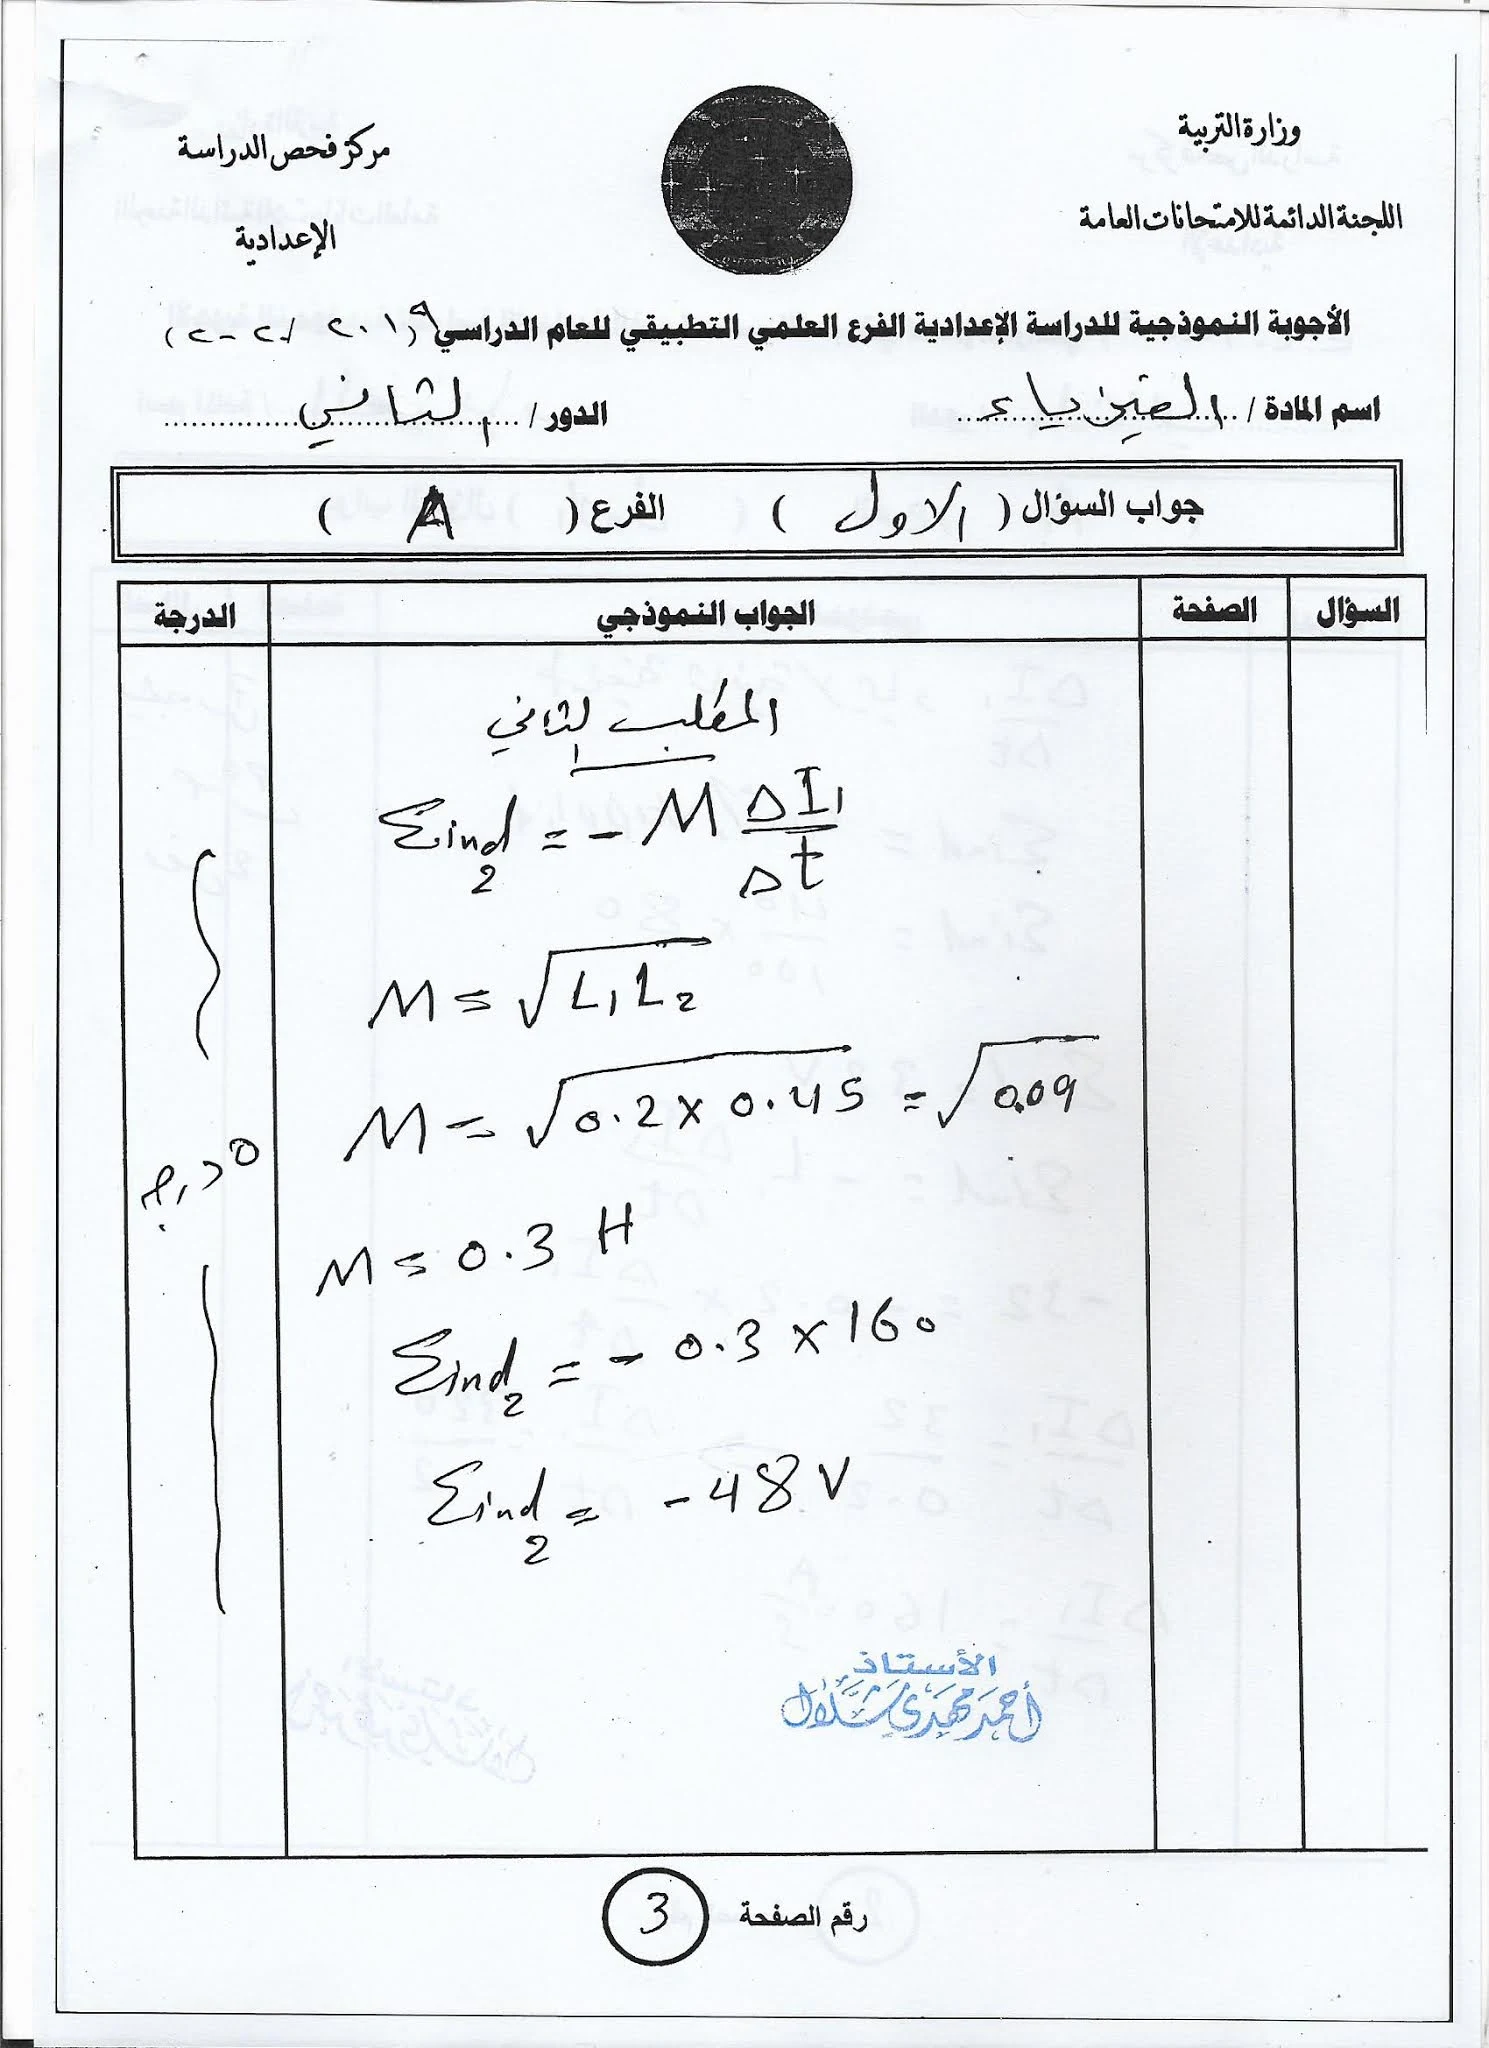 وزارة التربية
اللجنة الدائمة للامتحانات العامة
مركز فحص الدراسة
الإعدادية
الأجوبة النموذجية للدراسة الإعدادية الفرع العلمي التطبيقي للعام الدراسي (٢٠١٩ / ٢٠٢٠)
اسم المادة / الفيزياء الدور / الثاني
جواب السؤال ( الاول ) الفرع ( A )
السؤال الصفحة الجواب النموذجي الدرجة
المطلب الثاني
Ɛind2 = - M ΔI1 / Δt
M = √L1L2
M = √0.2 x 0.45 = √0.09
M = 0.3 H
Ɛind2 = - 0.3 x 160
Ɛind2 = - 48 V
٥ درجة
الأستاذ
أحمد مهدي شلال
رقم الصفحة 3